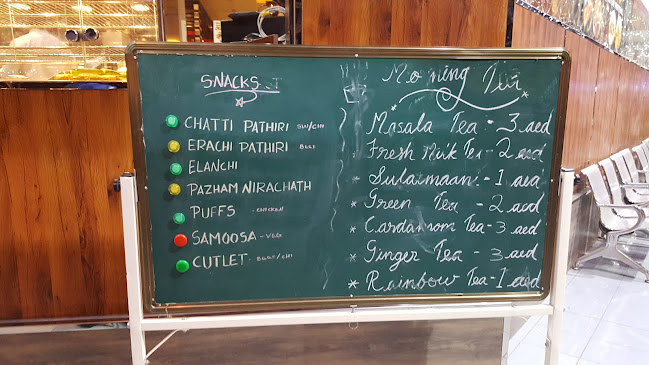 SNACKS
CHATTI PATHIRI SW/CHI
ERACHI PATHIRI
ELANCHI
PAZHAM NIRACHATH
PUFFS - CHICKEN
SAMOOSA - VEG
CUTLET - BEEF/CHI
Morning
Masala Tea - 3 aed
Fresh Milk Tea - 2 aed
* Sulaimaani - 1 aed
* Green Tea - 2 aed
* Cardamom Tea - 3 aed
* Ginger Tea - 3 aed
* Rainbow Tea - 1 aed